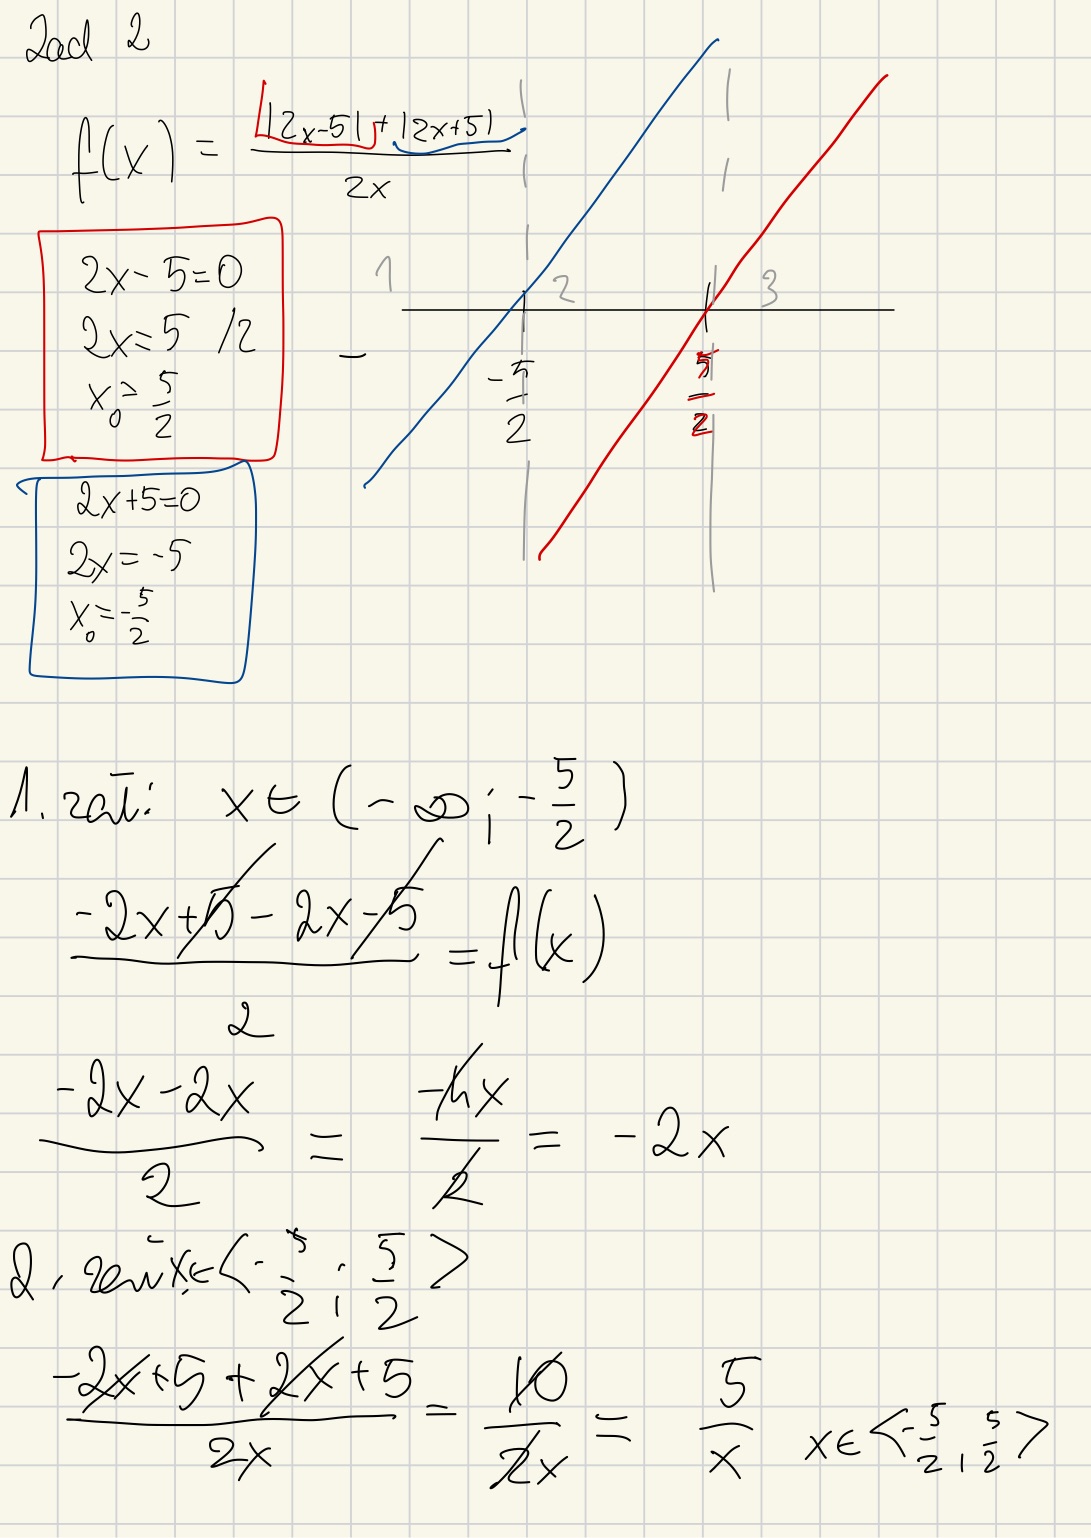 Zad 2
f(x) = (|2x-5| + |2x+5|)/(2x)
2x - 5 = 0
2x = 5 /2
x₀ = 5/2
2x+5=0
2x = -5
x₀ = -5/2
1 2 3
-
-5/2 5/2
1. zał: x ∈ (-∞; -5/2)
(-2x+5-2x-5)/2 = f(x)
(-2x-2x)/2 = -4x/2 = -2x
2. x∈<-5/2; 5/2>
(-2x+5+2x+5)/(2x) = 10/(2x) = 5/x x∈<-5/2, 5/2>